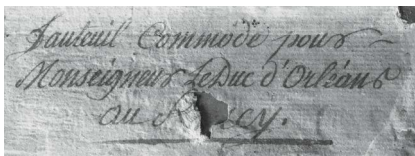 fauteuil Commode pour
Monseigneur Le Duc d'Orléans
au